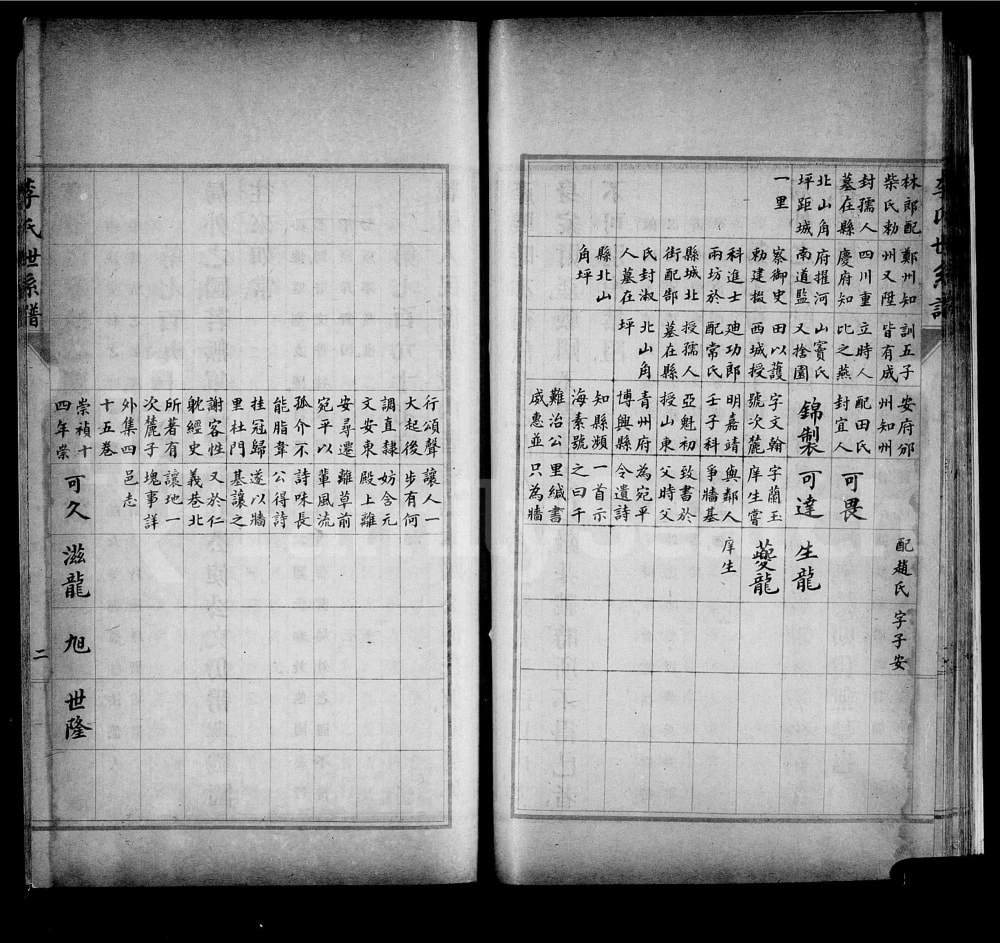 李氏世系譜
林郎配
柴氏勅
封孺人
墓在縣
北山角
坪距城
一里
鄭州知
州又陞
四川重
慶府知
府擢河
南道監
察御史
勅建掇
科進士
兩坊於
縣城北
街配郜
氏封淑
人墓在
縣北山
角坪
訓五子
皆有成
立時人
比之燕
山竇氏
又捨園
田以護
西城授
廸功郎
配常氏
授孺人
墓在縣
北山角
坪
安府邠
州知州
配田氏
封宜人
錦製
字文翰
號次麓
明嘉靖
壬子科
亞魁初
授山東
青州府
博興縣
知縣瀕
海素號
難治公
威惠並
可畏
可達
字蘭玉
庠生嘗
與鄰人
爭牆基
致書於
父時父
為宛平
令遺詩
一首示
之曰千
里緘書
只為牆
配趙氏
生龍
夔龍
庠生
字子安
行頌聲
大起後
調直隸
文安東
安尋遷
宛平以
孤介不
能脂韋
挂冠歸
里杜門
謝客性
躭經史
所著有
次麓子
外集四
十五巻
崇禎十
四年崇
讓人一
步有何
妨含元
殿上離
離草前
輩風流
詩味長
公得詩
遂以牆
基讓之
又於仁
義巷北
讓地一
塊事詳
邑志
可久
滋龍
旭
世隆
李氏世系譜
二